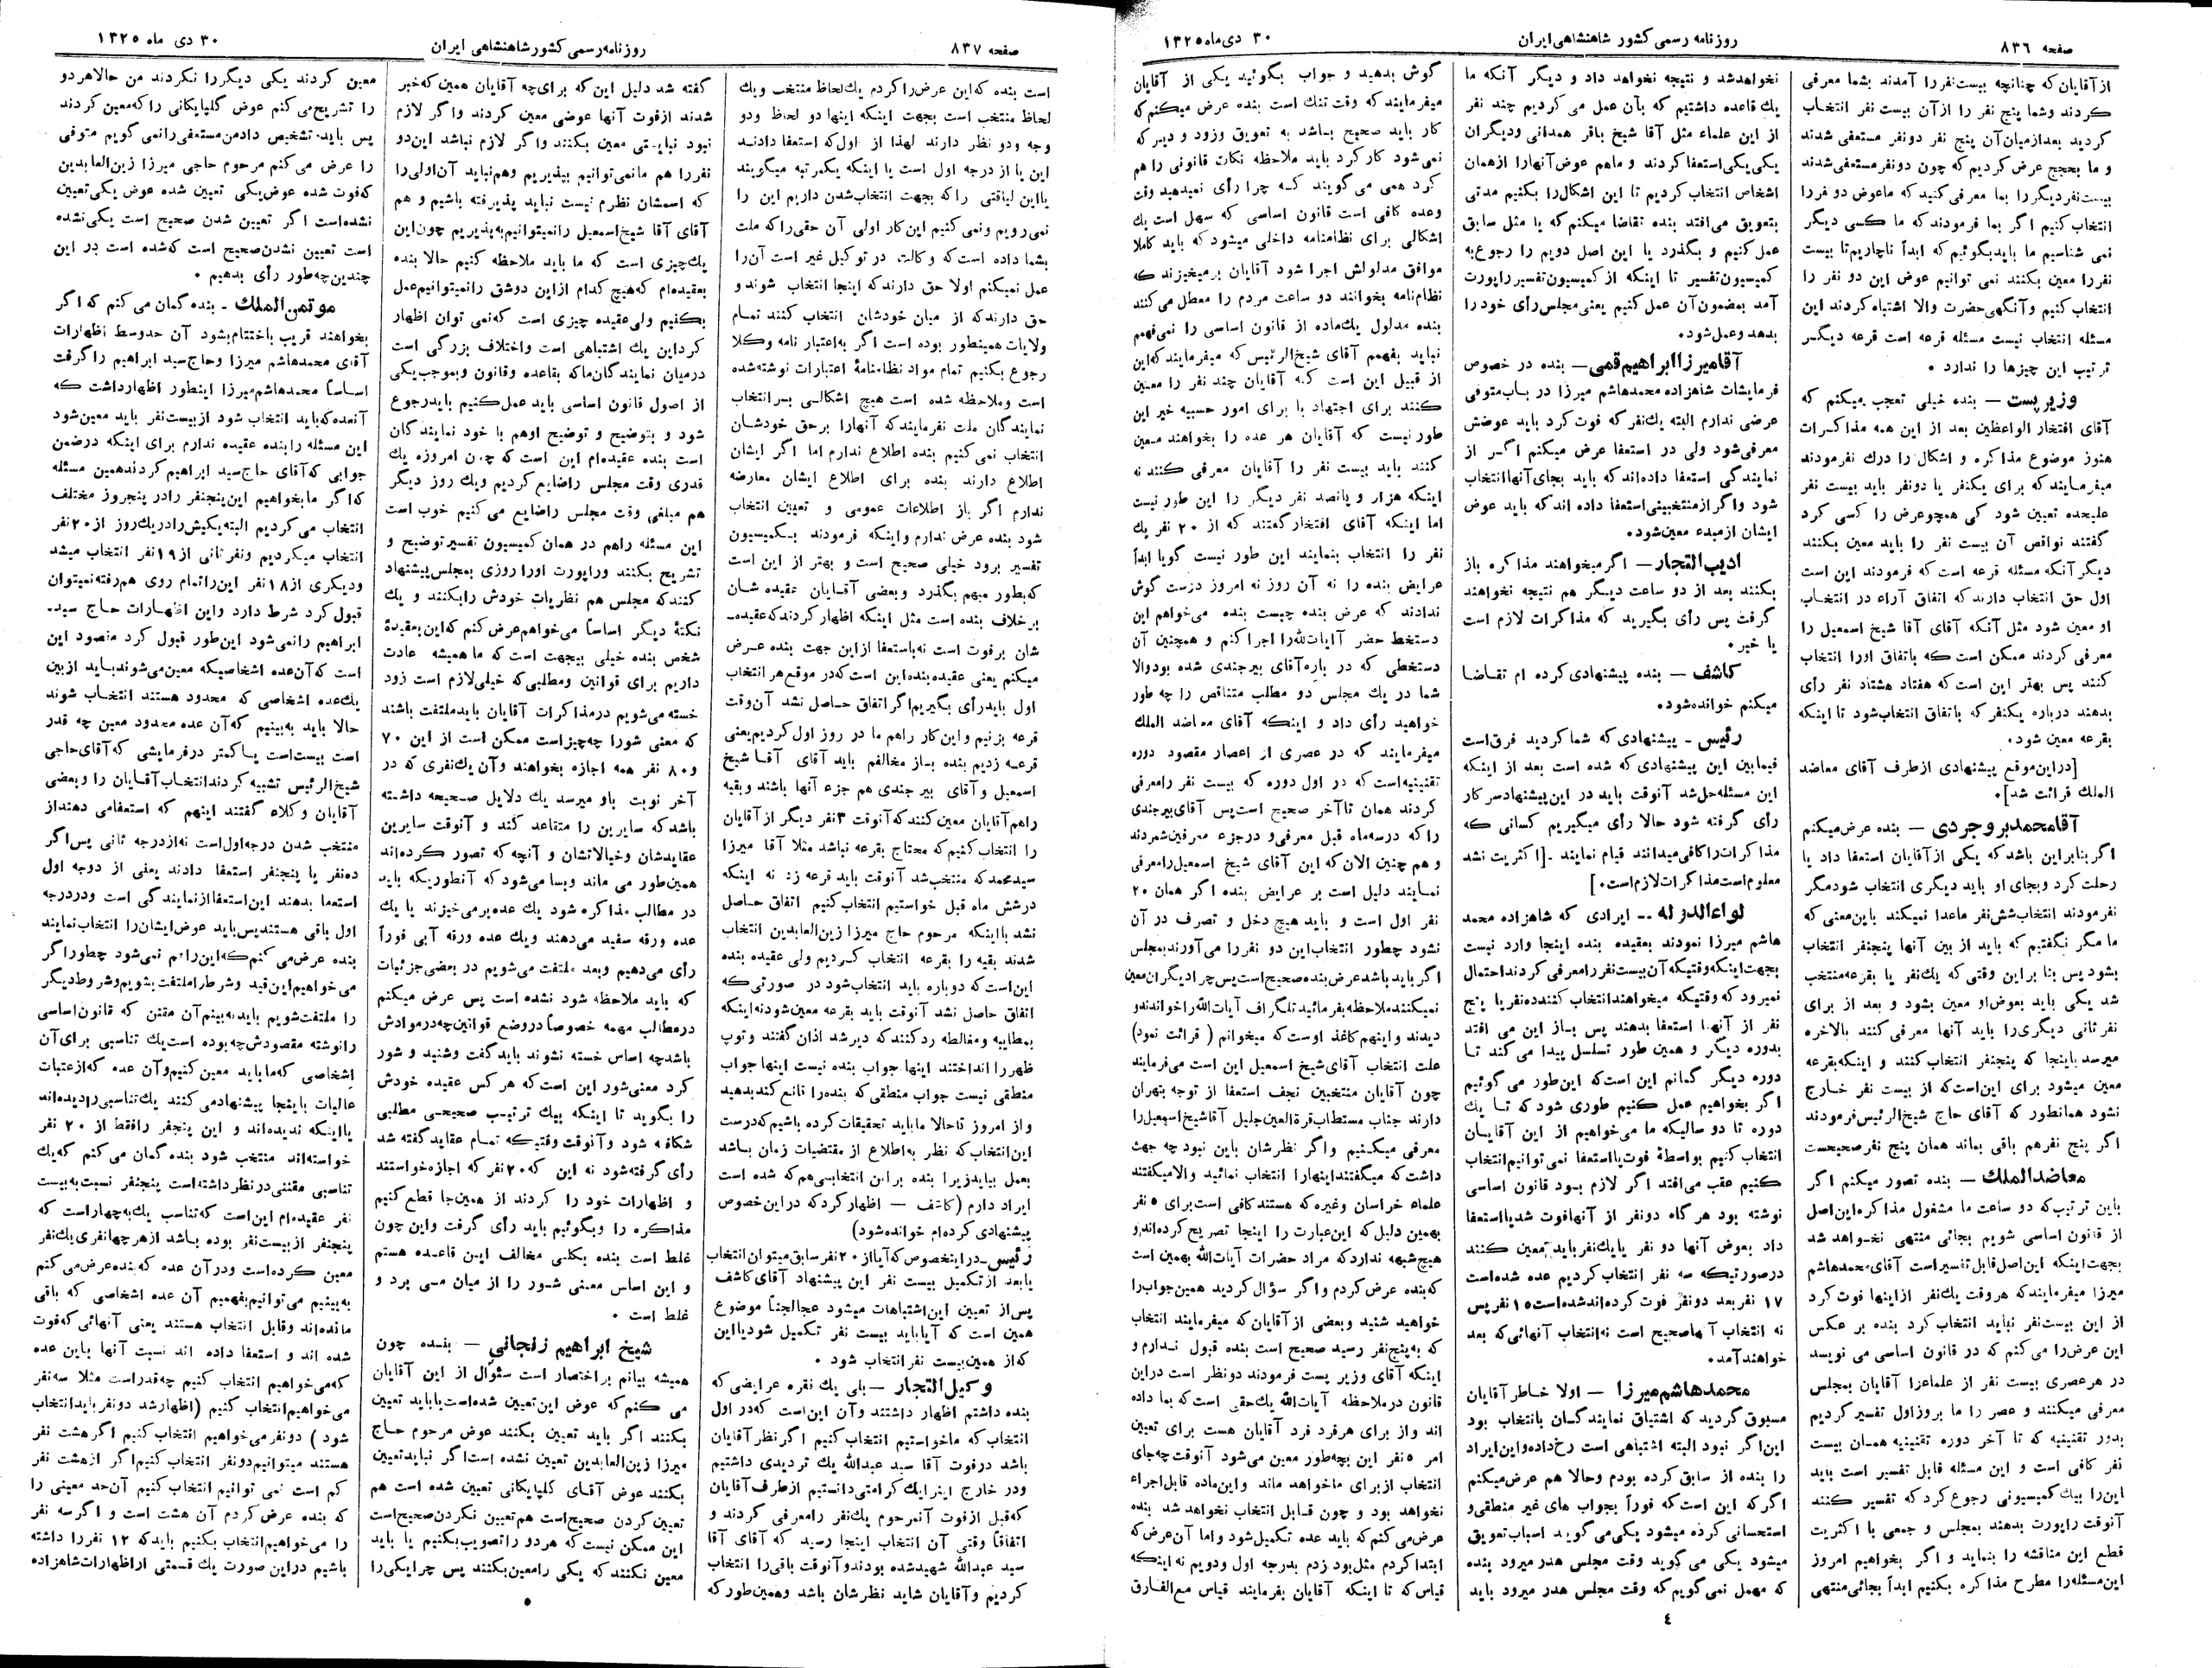 صفحه ۸۳۶
روزنامه رسمی کشور شاهنشاهی ایران
۳۰ دی‌ماه ۱۳۲۵
از آقایان که چنانچه بیست‌نفر را آمدند بشما معرفی
کردند وشما پنج نفر را از آن بیست نفر انتخاب
کردید بعد از میان آن پنج نفر دونفر مستعفی شدند
و ما بحجج عرض کردیم که چون دونفر مستعفی شدند
بیست‌نفر دیگر را بما معرفی کنید که ماعوض دو نفر را
انتخاب کنیم اگر بما فرمودند که ما کسی دیگر
نمی شناسیم ما باید بگوئیم که ابداً ناچاریم تا بیست
نفر را معین بکنند نمی توانیم عوض این دو نفر را
انتخاب کنیم وآنگهی حضرت والا اشتباه کردند این
مسئله انتخاب نیست مسئله قرعه است قرعه دیگر
ترتیب این چیزها را ندارد .
وزیر پست — بنده خیلی تعجب میکنم که
آقای افتخار الواعظین بعد از این همه مذاکرات
هنوز موضوع مذاکره و اشکال را درك نفرمودند
میفرمایند که برای یکنفر یا دونفر باید بیست نفر
علیحده تعیین شود کی همچو عرض را کسی کرد
گفتند نواقص آن بیست نفر را باید معین بکنند
دیگر آنکه مسئله قرعه است که فرمودند این است
اول حق انتخاب دارند که اتفاق آراء در انتخاب
او معین شود مثل آنکه آقای آقا شیخ اسمعیل را
معرفی کردند ممکن است که باتفاق اورا انتخاب
کنند پس بهتر این است که هفتاد هشتاد نفر رأی
بدهند درباره یکنفر که باتفاق انتخاب شود تا اینکه
بقرعه معین شود.
[دراین موقع پیشنهادی ازطرف آقای معاضد
الملك قرائت شد].
آقامحمد بروجردی — بنده عرض میکنم
اگر بنابراین باشد که یکی از آقایان استعفا داد یا
رحلت کرد وبجای او باید دیگری انتخاب شود مگر
نفرمودند انتخاب شش نفر ماعدا نمیکند باین معنی که
ما مگر نگفتیم که باید از بین آنها پنجنفر انتخاب
بشود پس بنا براین وقتی که یك‌نفر یا بقرعه منتخب
شد یکی باید بعوض او معین بشود و بعد از برای
نفر ثانی دیگری را باید آنها معرفی کنند بالاخره
میرسد باینجا که پنجنفر انتخاب کنند و اینکه بقرعه
معین میشود برای این است که از بیست نفر خارج
نشود همانطور که آقای حاج شیخ الرئیس فرمودند
اگر پنج نفر هم باقی بماند همان پنج نفر صحیحست
معاضد الملك — بنده تصور میکنم اگر
باین ترتیب که دو ساعت ما مشغول مذاکره این اصل
از قانون اساسی شویم بجائی منتهی نخواهد شد
بجهت اینکه این اصل قابل تفسیر است آقای محمدهاشم
میرزا میفرمایند که هر وقت یك‌نفر از اینها فوت کرد
از این بیست نفر نباید انتخاب کرد بنده بر عکس
این عرض را می کنم که در قانون اساسی می نویسد
در هر عصری بیست نفر از علما عزا آقایان بمجلس
معرفی میکنند و عصر را ما بروز اول تفسیر کردیم
بدور تقنینیه که تا آخر دوره تقنینیه همان بیست
نفر کافی است و این مسئله قابل تفسیر است باید
این را بیك کمیسیونی رجوع کرد که تفسیر کنند
آنوقت راپورت بدهند بمجلس و جمعی با اکثریت
قطع این مناقشه را بنماید و اگر بخواهیم امروز
این مسئله را مطرح مذاکره بکنیم ابداً بجائی منتهی
نخواهد شد و نتیجه نخواهد داد و دیگر آنکه ما
یك قاعده داشتیم که بآن عمل می کردیم چند نفر
از این علماء مثل آقا شیخ باقر همدانی ودیگران
یکی یکی استعفا کردند و ماهم عوض آنهارا از همان
اشخاص انتخاب کردیم تا این اشکال را بکنیم مدتی
بتعویق می‌افتد بنده تقاضا میکنم که یا مثل سابق
عمل کنیم و بگذرد یا این اصل دویم را رجوع به
کمیسیون تفسیر تا اینکه از کمیسیون تفسیر راپورت
آمد بمضمون آن عمل کنیم یعنی مجلس رأی خود را
بدهد وعمل شود.
آقامیرزا ابراهیم قمی — بنده در خصوص
فرمایشات شاهزاده محمدهاشم میرزا در باب متوفی
عرضی ندارم البته یك‌نفر که فوت کرد باید عوضش
معرفی شود ولی در استعفا عرض میکنم اگر از
نمایندگی استعفا داده‌اند که باید بجای آنها انتخاب
شود واگر از منتخبیتی استعفا داده اند که باید عوض
ایشان از مبدء معین شود.
ادیب التجار — اگر میخواهند مذاکره باز
بکنند بعد از دو ساعت دیگر هم نتیجه نخواهند
گرفت پس رأی بگیرید که مذاکرات لازم است
یا خیر.
کاشف — بنده پیشنهادی کرده ام تقاضا
میکنم خوانده شود.
رئیس ـ پیشنهادی که شما کردید فرق است
فیمابین این پیشنهادی که شده است بعد از اینکه
این مسئله حل شد آنوقت باید در این پیشنهاد سرکار
رأی گرفته شود حالا رأی میگیریم کسانی که
مذاکرات را کافی میدانند قیام نمایند ـ [اکثریت نشد
معلوم است مذاکرات لازم است.]
لواء الدوله — ایرادی که شاهزاده محمد
هاشم میرزا نمودند بعقیده بنده اینجا وارد نیست
بجهت اینکه وقتیکه آن بیست نفر را معرفی کردند احتمال
نمیرود که وقتیکه میخواهند انتخاب کننده نفر یا پنج
نفر از آنها استعفا بدهند پس باز این می افتد
بدوره دیگر و همین طور تسلسل پیدا می کند تا
دوره دیگر گمانم این است که این طور می گوئیم
اگر بخواهیم عمل کنیم طوری شود که تا یك
دوره تا دو سالیکه ما می‌خواهیم از این آقایان
انتخاب کنیم بواسطهٔ فوت یا استعفا نمی توانیم انتخاب
کنیم عقب می‌افتد اگر لازم بود قانون اساسی
نوشته بود هر گاه دونفر از آنها فوت شد یا استعفا
داد بعوض آنها دو نفر یا یك نفر باید معین کنند
درصورتیکه سه نفر انتخاب کردیم عده شده است
۱۷ نفر بعد دونفر فوت کرده‌اند شده است ۱۵ نفر پس
نه انتخاب آنها صحیح است نه انتخاب آنهائی که بعد
خواهند آمد.
محمدهاشم میرزا — اولا خاطر آقایان
مسبوق گردید که اشتیاق نمایندگان بانتخاب بود
این اگر نبود البته اشتباهی است رخ داده و این ایراد
را بنده از سابق کرده بودم وحالا هم عرض میکنم
اگر که این است که فوراً بجواب های غیر منطقی و
استحسانی کرده میشود یکی می گوید اسباب تعویق
میشود یکی می گوید وقت مجلس هدر میرود بنده
که مهمل نمی گویم که وقت مجلس هدر میرود باید
گوش بدهید و جواب بگوئید یکی از آقایان
میفرمایند که وقت تنك است بنده عرض میکنم که
کار باید صحیح باشد به تعویق وزود و دیر که
نمی شود کار کرد باید ملاحظه نکات قانونی را هم
کرد همی می گویند که چرا رأی نمیدهید وقت
وعده کافی است قانون اساسی که سهل است یك
اشکالی برای نظامنامه داخلی میشود که باید کاملا
موافق مدلولش اجرا شود آقایان برمیخیزند که
نظام‌نامه بخوانند دو ساعت مردم را معطل می کنند
بنده مدلول یك ماده از قانون اساسی را نمی‌فهمم
نباید بفهمم آقای شیخ الرئیس که میفرمایند که این
از قبیل این است که آقایان چند نفر را معین
کنند برای اجتهاد یا برای امور حسبیه خیر این
طور نیست که آقایان هر عده را بخواهند معین
کنند باید بیست نفر را آقایان معرفی کنند نه
اینکه هزار و پانصد نفر دیگر را این طور نیست
اما اینکه آقای افتخار گفتند که از ۲۰ نفر یك
نفر را انتخاب بنمایند این طور نیست گویا ابداً
عرایض بنده را نه آن روز نه امروز درست گوش
ندادند که عرض بنده چیست بنده می‌خواهم این
دستخط حضر آیات‌الله را اجرا کنم و همچنین آن
دستخطی که در باره آقای بیرجندی شده بود والا
شما در یك مجلس دو مطلب متناقض را چه طور
خواهید رأی داد و اینکه آقای معاضد الملك
میفرمایند که در عصری از اعصار مقصود دوره
تقنینیه است که در اول دوره که بیست نفر را معرفی
کردند همان تا آخر صحیح است پس آقای بیرجندی
را که در سه ماه قبل معرفی و در جزء معرفین شمردند
و هم چنین الان که این آقای شیخ اسمعیل را معرفی
نمایند دلیل است بر عرایض بنده اگر همان ۲۰
نفر اول است و باید هیچ دخل و تصرف در آن
نشود چطور انتخاب این دو نفر را می آورند بمجلس
اگر باید باشد عرض بنده صحیح است پس چرا دیگران معین
نمیکنند ملاحظه بفرمائید تلگراف آیات‌الله را خواندند و
دیدند و اینهم کاغذ اوست که میخوانم ( قرائت نمود)
علت انتخاب آقای شیخ اسمعیل این است می‌فرمایند
چون آقایان منتخبین نجف استعفا از توجه بتهران
دارند جناب مستطاب قرةالعین جلیل آقا شیخ اسمعیل را
معرفی میکنیم و اگر نظرشان باین نبود چه جهت
داشت که میگفتند اینهارا انتخاب نمائید والا میگفتند
علماء خراسان وغیره که هستند کافی است برای ۵ نفر
بهمین دلیل که این عبارت را اینجا تصریح کرده‌اند و
هیچ شبهه ندارد که مراد حضرات آیات‌الله بهمین است
که بنده عرض کردم و اگر سؤال کردید همین جواب را
خواهید شنید و بعضی از آقایان که میفرمایند انتخاب
که به پنج نفر رسید صحیح است بنده قبول ندارم و
اینکه آقای وزیر پست فرمودند دونظر است در این
قانون درملاحظه آیات‌الله یك حقی است که بما داده
اند واز برای هر فرد فرد آقایان هست برای تعیین
امر ۵ نفر این بچه‌طور معین می‌شود آنوقت چه جای
انتخاب از برای ما خواهد ماند واین ماده قابل اجراء
نخواهد بود و چون قابل انتخاب نخواهد شد بنده
عرض می‌کنم که باید عده تکمیل شود و اما آن عرض که
ابتدا کردم مثل بود زدم بدرجه اول ودویم نه اینکه
قیاس که تا اینکه آقایان بفرمایند قیاس مع الفارق
٤
صفحه ۸۳۷
روزنامه رسمی کشور شاهنشاهی ایران
۳۰ دی ماه ۱۳۲۵
است بنده که این عرض را کردم یك لحاظ منتخب و یك
لحاظ منتخب است بجهت اینکه اینها دو لحاظ ودو
وجه ودو نظر دارند لهذا از اول که استعفا دادند
این یا از درجه اول است یا اینکه یکمرتبه میگویند
یا این لیاقتی را که بجهت انتخاب شدن داریم این را
نمی‌رویم ونمی کنیم این کار اولی آن حقی را که ملت
بشما داده است که وکالت در توکیل غیر است آن را
عمل نمیکنم اولا حق دارند که اینجا انتخاب شوند و
حق دارند که از میان خودشان انتخاب کنند تمام
ولایات همینطور بوده است اگر به اعتبار نامه وکلا
رجوع بکنیم تمام مواد نظامنامهٔ اعتبارات نوشته شده
است وملاحظه شده است هیچ اشکالی بر انتخاب
نمایندگان ملت نفرمایند که آنهارا برحق خودشان
انتخاب نمی کنیم بنده اطلاع ندارم اما اگر ایشان
اطلاع دارند بنده برای اطلاع ایشان معارضه
ندارم اگر باز اطلاعات عمومی و تعیین انتخاب
شود بنده عرض ندارم واینکه فرمودند بکمیسیون
تفسیر برود خیلی صحیح است و بهتر از این است
که بطور مبهم بگذرد وبعضی آقایان عقیده شان
برخلاف بنده است مثل اینکه اظهار کردند که عقیده‌ـ
شان برفوت است نه باستعفا از این جهت بنده عرض
میکنم یعنی عقیده بنده این است که در موقع هر انتخاب
اول باید رأی بگیریم اگر اتفاق حاصل نشد آن‌وقت
قرعه بزنیم واین کار راهم ما در روز اول کردیم یعنی
قرعه زدیم بنده باز مخالفم باید آقای آقا شیخ
اسمعیل و آقای بیرجندی هم جزء آنها باشند و بقیه
راهم آقایان معین کنند که آنوقت ۳ نفر دیگر از آقایان
را انتخاب کنیم که محتاج بقرعه نباشد مثلا آقا میرزا
سید محمد که منتخب شد آنوقت باید قرعه زد نه اینکه
درشش ماه قبل خواستیم انتخاب کنیم اتفاق حاصل
نشد بااینکه مرحوم حاج میرزا زین‌العابدین انتخاب
شدند بقیه را بقرعه انتخاب کردیم ولی عقیده بنده
این است که دوباره باید انتخاب شود در صورتی که
اتفاق حاصل نشد آنوقت باید بقرعه معین شود نه اینکه
بمطایبه ومغالطه رد کنند که دیر شد اذان گفتند وتوپ
ظهر را انداختند اینها جواب بنده نیست اینها جواب
منطقی نیست جواب منطقی که بنده را قانع کند بدهید
و از امروز تا حالا ما باید تحقیقات کرده باشیم که درست
این انتخاب که نظر به اطلاع از مقتضیات زمان باشد
بعمل بیاید زیرا بنده براین انتخابی هم که شده است
ایراد دارم (کاشف — اظهار کرد که در این خصوص
پیشنهادی کرده‌ام خوانده شود)
رئیس ـ در اینخصوص که آیا از ۲۰ نفر سابق میتوان انتخاب
یا بعد از تکمیل بیست نفر این پیشنهاد آقای کاشف
پس از تعیین این اشتباهات میشود عجالتاً موضوع
همین است که آیا باید بیست نفر تکمیل شود یا این
که از همین بیست نفر انتخاب شود .
وکیل التجار — بلی یك نقره عرایضی که
بنده داشتم اظهار داشتند وآن این است که در اول
انتخاب که ما خواستیم انتخاب کنیم اگر نظر آقایان
باشد درفوت آقا سید عبدالله یك تردیدی داشتیم
ودر خارج اینرا یك کرامتی دانستیم ازطرف آقایان
که قبل از فوت آنمرحوم یك نفر را معرفی کردند و
اتفاقاً وقتی آن انتخاب اینجا رسید که آقای آقا
سید عبدالله شهید شده بودند و آنوقت باقی را انتخاب
کردیم و آقایان شاید نظرشان باشد وهمین طور که
گفته شد دلیل این که برای چه آقایان همین که خبر
شدند از فوت آنها عوضی معین کردند واگر لازم
نبود نبایستی معین بکنند واگر لازم نباشد این دو
نفر را هم ما نمی‌توانیم بپذیریم وهم نباید آن اولی را
که اسمشان نظرم نیست نباید پذیرفته باشیم و هم
آقای آقا شیخ اسمعیل را نمیتوانیم به‌پذیریم چون این
یك چیزی است که ما باید ملاحظه کنیم حالا بنده
بعقیده‌ام که هیچ کدام از این دوشق را نمیتوانیم عمل
بکنیم ولی عقیده چیزی است که نمی توان اظهار
کرد این یك اشتباهی است واختلاف بزرگی است
درمیان نمایندگان ما که بقاعده وقانون وبموجب یکی
از اصول قانون اساسی باید عمل کنیم باید رجوع
شود و بتوضیح و توضیح اوهم با خود نمایندگان
است بنده عقیده‌ام این است که چون امروزه یك
قدری وقت مجلس را ضایع کردیم ویك روز دیگر
هم مبلغی وقت مجلس را ضایع می کنیم خوب است
این مسئله راهم در همان کمیسیون تفسیر توضیح و
تشریح بکنند وراپورت اورا روزی بمجلس پیشنهاد
کنند که مجلس هم نظریات خودش را بکنند و یك
نکتهٔ دیگر اساساً می‌خواهم عرض کنم که این بعقیدهٔ
شخص بنده خیلی بیجهت است که ما همیشه عادت
داریم برای قوانین ومطلبی که خیلی لازم است زود
خسته می‌شویم درمذاکرات آقایان باید ملتفت باشند
که معنی شورا چه‌چیز است ممکن است از این ۷۰
و ۸۰ نفر همه اجازه بخواهند وآن یك نفری که در
آخر نوبت باو میرسد یك دلایل صحیحه داشته
باشد که سایرین را متقاعد کند و آنوقت سایرین
عقایدشان وخیالاتشان و آنچه که تصور کرده‌اند
همین‌طور می ماند وبسا می‌شود که آنطوریکه باید
در مطالب مذاکره شود یك عده برمی‌خیزند یا یك
عده ورقه سفید می‌دهند ویك عده ورقه آبی فوراً
رأی می‌دهیم وبعد ملتفت می‌شویم در بعضی جزئیات
که باید ملاحظه شود نشده است پس عرض میکنم
درمطالب مهمه خصوصاً دروضع قوانین چه درموادش
باشد چه اساس خسته نشوند باید گفت وشنید و شور
کرد معنی شور این است که هر کس عقیده خودش
را بگوید تا اینکه بیك ترتیب صحیحی مطلبی
شکافته شود وآنوقت وقتیکه تمام عقاید گفته شد
رأی گرفته شود نه این که ۲۰ نفر که اجازه خواستند
و اظهارات خود را کردند از همین‌جا قطع کنیم
مذاکره را وبگوئیم باید رأی گرفت واین چون
غلط است بنده بکلی مخالف این قاعده هستم
و این اساس معنی شور را از میان می برد و
غلط است .
شیخ ابراهیم زنجانی — بنده چون
همیشه بیانم براختصار است سئوال از این آقایان
می کنم که عوض این تعیین شده است یا باید تعیین
بکنند اگر باید تعیین بکنند عوض مرحوم حاج
میرزا زین‌العابدین تعیین نشده است اگر نباید تعیین
بکنند عوض آقای گلپایگانی تعیین شده است هم
تعیین کردن صحیح است هم تعیین نکردن صحیح است
این ممکن نیست که هردو را تصویب بکنیم یا باید
معین نکنند که یکی را معین بکنند پس چرا یکی را
معین کردند یکی دیگر را نکردند من حالا هر دو
را تشریح می کنم عوض گلپایگانی را که معین کردند
پس باید تشخیص داد من مستعفی را نمی گویم متوفی
را عرض می‌کنم مرحوم حاجی میرزا زین‌العابدین
که فوت شده عوض یکی تعیین شده عوض یکی تعیین
نشده است اگر تعیین شدن صحیح است یکی نشده
است تعیین نشدن صحیح است که شده است در این
چندین چه‌طور رأی بدهیم .
موتمن الملك ـ بنده گمان می کنم که اگر
بخواهند قریب باختتام بشود آن حدوسط اظهارات
آقای محمدهاشم میرزا وحاج سید ابراهیم را گرفت
اساساً محمدهاشم میرزا اینطور اظهار داشت که
آنعده که باید انتخاب شود از بیست نفر باید معین شود
این مسئله را بنده عقیده ندارم برای اینکه درضمن
جوابی که آقای حاج سید ابراهیم کردند همین مسئله
که اگر ما بخواهیم این پنجنفر را در پنجروز مختلف
انتخاب می کردیم البته یکیش را در یك روز از ۲۰ نفر
انتخاب میکردیم ونفر ثانی از ۱۹ نفر انتخاب میشد
ودیگری از ۱۸ نفر این را تمام روی هم‌رفته نمیتوان
قبول کرد شرط دارد واین اظهارات حاج سیدـ
ابراهیم را نمی‌شود این‌طور قبول کرد مقصود این
است که آن عده اشخاصیکه معین می‌شوند باید از بین
یك عده اشخاصی که محدود هستند انتخاب شوند
حالا باید به‌بینیم که آن عده محدود معین چه قدر
است بیست است یا کمتر درفرمایشی که آقای حاجی
شیخ الرئیس تشبیه کردند انتخاب آقایان را وبعضی
آقایان وکلاء گفتند اینهم که استعفا می دهند از
منتخب شدن درجه اول است نه از درجه ثانی پس اگر
ده‌نفر یا پنجنفر استعفا دادند یعنی از درجه اول
استعفا بدهند این استعفا از نمایندگی است ودر درجه
اول باقی هستند پس باید عوض ایشان را انتخاب نمایند
بنده عرض می کنم که این را نم نمی‌شود چطور اگر
می‌خواهیم این قید وشرط را ملتفت بشویم وشروط دیگر
را ملتفت شویم باید به‌بینم آن مقنن که قانون اساسی
را نوشته مقصودش چه بوده است یك تناسبی برای آن
اشخاصی که ما باید معین کنیم وآن عده که از عتبات
عالیات باینجا پیشنهاد می کنند یك تناسبی را دیده‌اند
یا اینکه ندیده‌اند و این پنجنفر را فقط از ۲۰ نفر
خواسته‌اند منتخب شود بنده گمان می کنم که یك
تناسبی مقننی درنظر داشته است پنجنفر نسبت به بیست
نفر عقیده‌ام این است که تناسب یك به‌چهار است که
پنجنفر از بیست نفر بوده باشد از هر چهار نفری یك نفر
معین کرده است ودر آن عده که بنده عرض می کنم
به‌بینیم می‌توانیم بفهمیم آن عده اشخاصی که باقی
مانده‌اند وقابل انتخاب هستند یعنی آنهائی که فوت
شده اند و استعفا داده اند نسبت آنها باین عده
که می‌خواهیم انتخاب کنیم چه قدر است مثلا سه نفر
می‌خواهیم انتخاب کنیم (اظهار شد دونفر باید انتخاب
شود ) دونفر می‌خواهیم انتخاب کنیم اگر هشت نفر
هستند میتوانیم دونفر انتخاب کنیم اگر از هشت نفر
کم است نمی توانیم انتخاب کنیم آن حد معینی را
که بنده عرض کردم آن هشت است و اگر سه نفر
را می‌خواهیم انتخاب بکنیم باید که ۱۲ نفر را داشته
باشیم دراین صورت یك قسمتی از اظهارات شاهزاده
۵